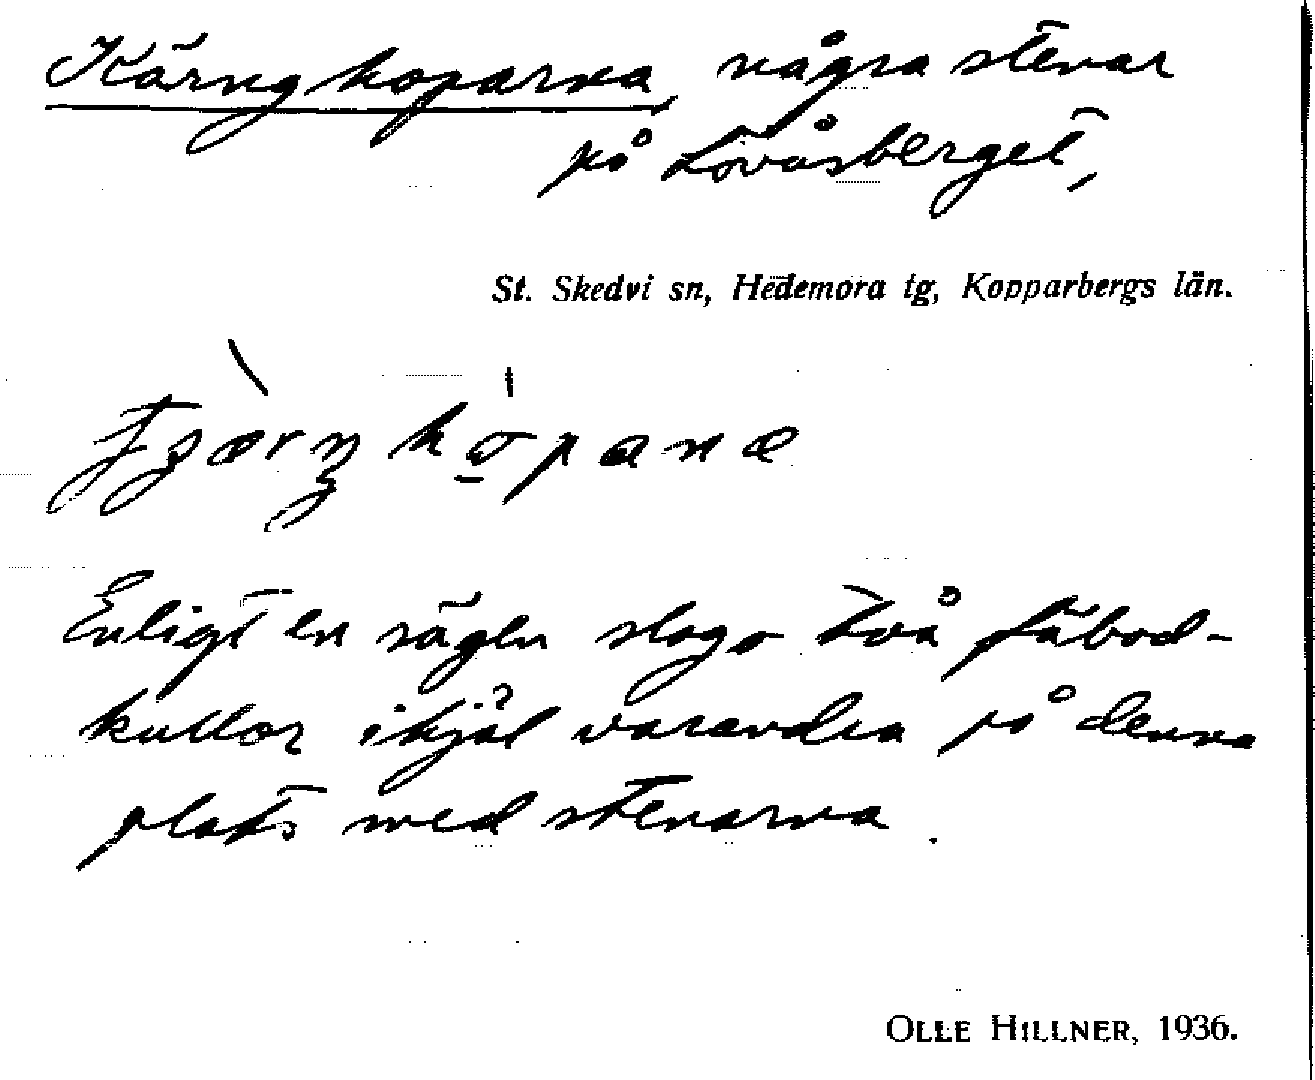 Kärngkoparna, några stenar
på Lövåsberget,
St. Skedvi sn, Hedemora tg, Kopparbergs län.
Enligt en sägen slogo två fäbod-
kullor ihjäl varandra på denna
plats med stenarna.
OLLE HILLNER, 1936.